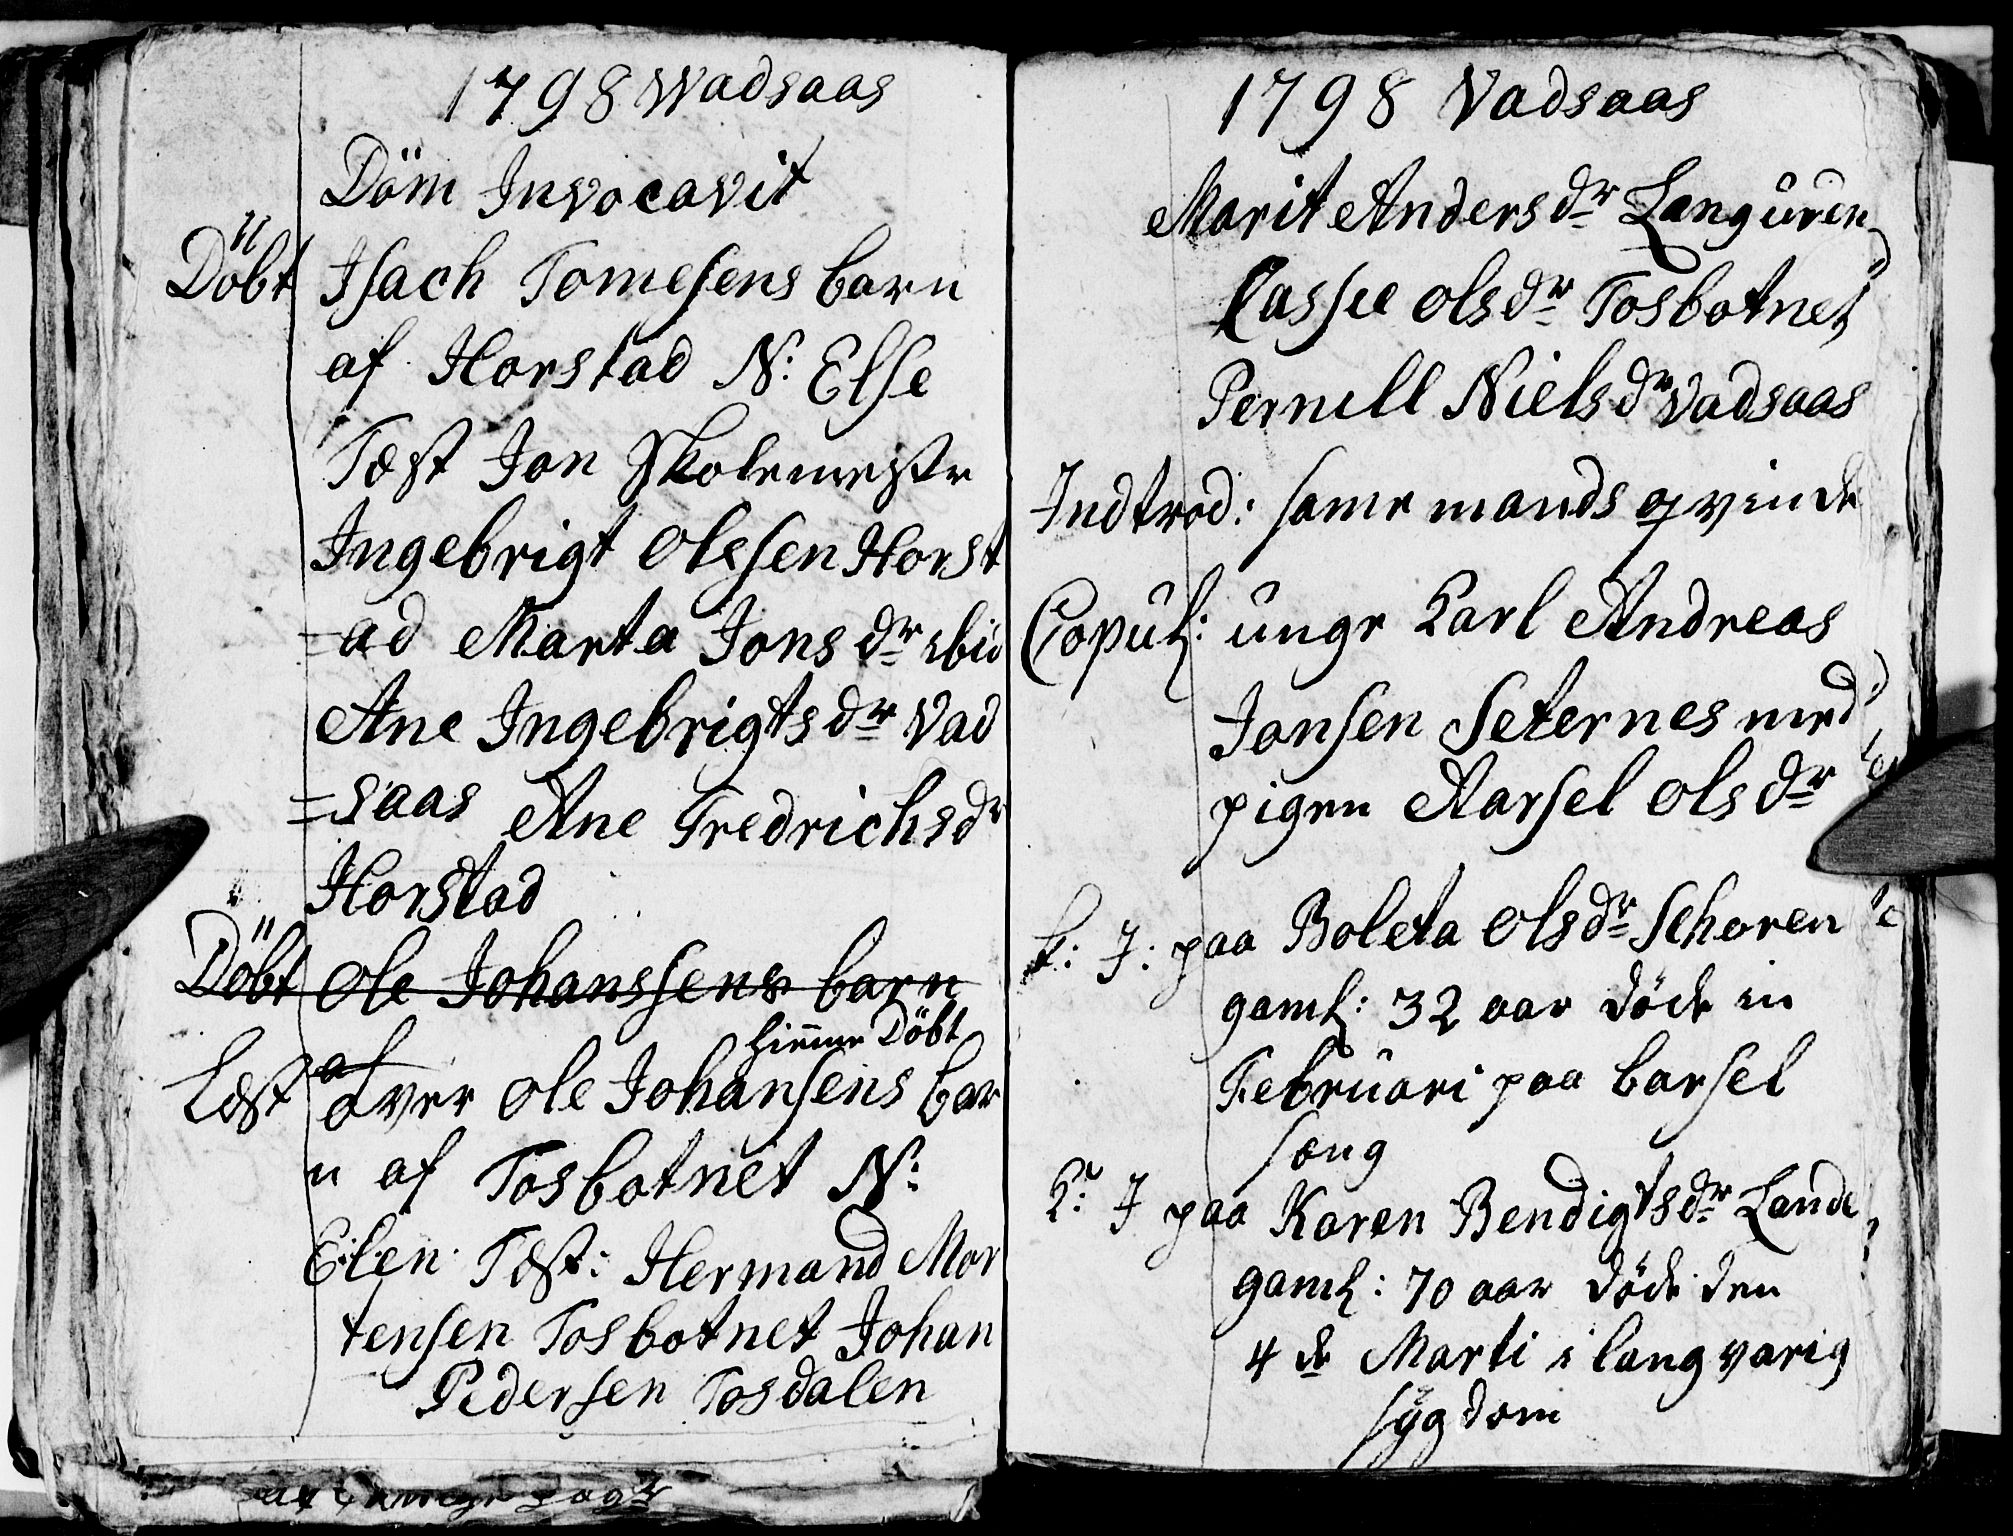 1798 Wadsaas
Döm Invocavit
Döbt Isach Tomesens barn
af Horstad N: Else
Tæst Jon Skolemestr
Ingebrigt Olssen Horst
=ad Marta Jons dr ibid
Ane Ingebrigts dr Vad
=saas Ane Fredrichs dr
Horstad
Döbt Ole Johanssens barn
af
hiemme Döbt
Læst over Ole Johansens bar
n af Tosbotnet N:
Elen Tæst: Hermand Mor
tensen Tosbotnet Johan
Pedersen Tosdalen
1798 Vadsaas
Marit Anders dr Languren
Lassee Ols dr Tosbotnet
Pernell Niels dr Vadsaas
Indtrod: same mands qvinde
Copul: unge Karl Andreas
Jonsen Seternes med
pigen Aarsel Ols dr
k: J: paa Boleta Ols dr Schoren
gaml: 32 aar döde in
Februari paa barsel
sæng
K: J paa Karen Bendigts dr Lande
gaml: 70 aar döde den
4 de Marti i langvarig
sÿgdom